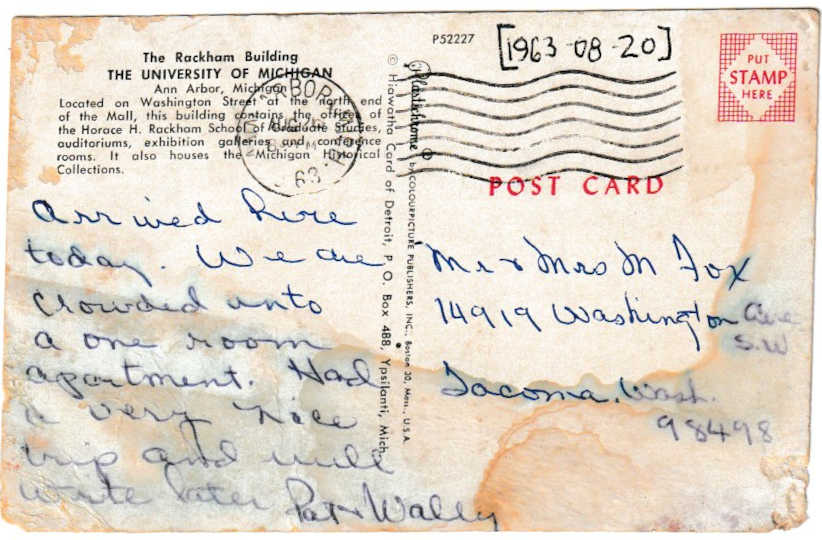 The Rackham Building
THE UNIVERSITY OF MICHIGAN
Ann Arbor, Michigan
Located on Washington Street at the north end
of the Mall, this building contains the offices of
the Horace H. Rackham School of Graduate Studies,
auditoriums, exhibition galleries and conference
rooms. It also houses the Michigan Historical
Collections.
P52227
[1963-08-20]
PUT
STAMP
HERE
ARBOR
AUG
PM
63
Plastichrome ® by COLOURPICTURE PUBLISHERS, INC., Boston 30, Mass., U.S.A.
© Hiawatha Card of Detroit, P. O. Box 488, Ypsilanti, Mich.
POST CARD
Arrived here
today. We are
crowded into
a one room
apartment. Had
a very nice
trip and will
write later Pat & Wally
Mr & Mrs M Fox
14919 Washington Ave
S.W
Tacoma, Wash.
98498